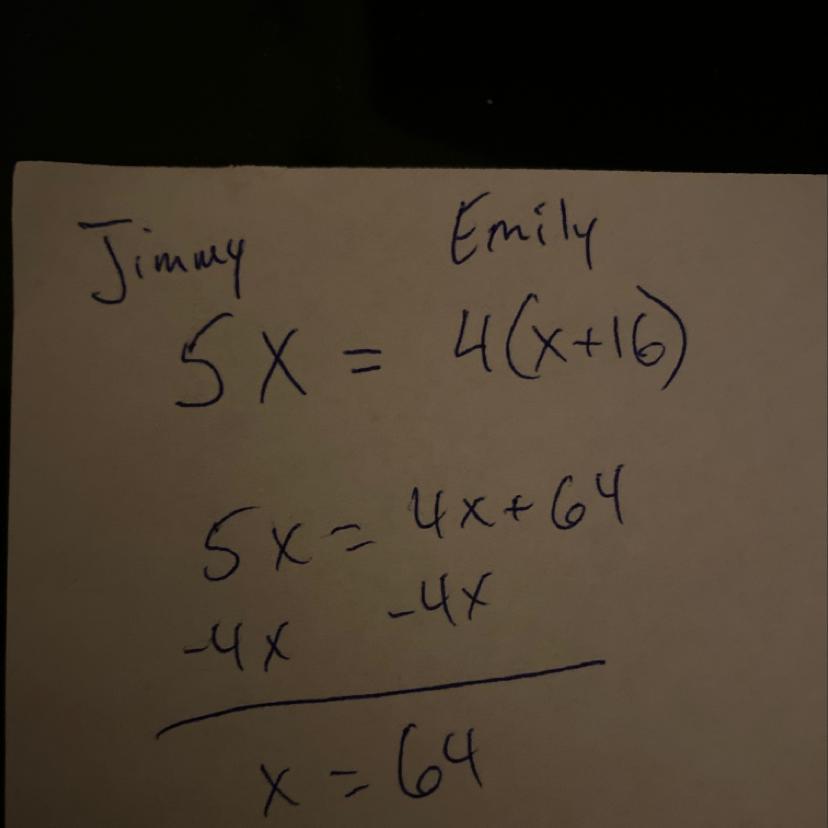 Jimmy Emily
5x = 4(x+16)
5x = 4x + 64
-4x -4x
x = 64